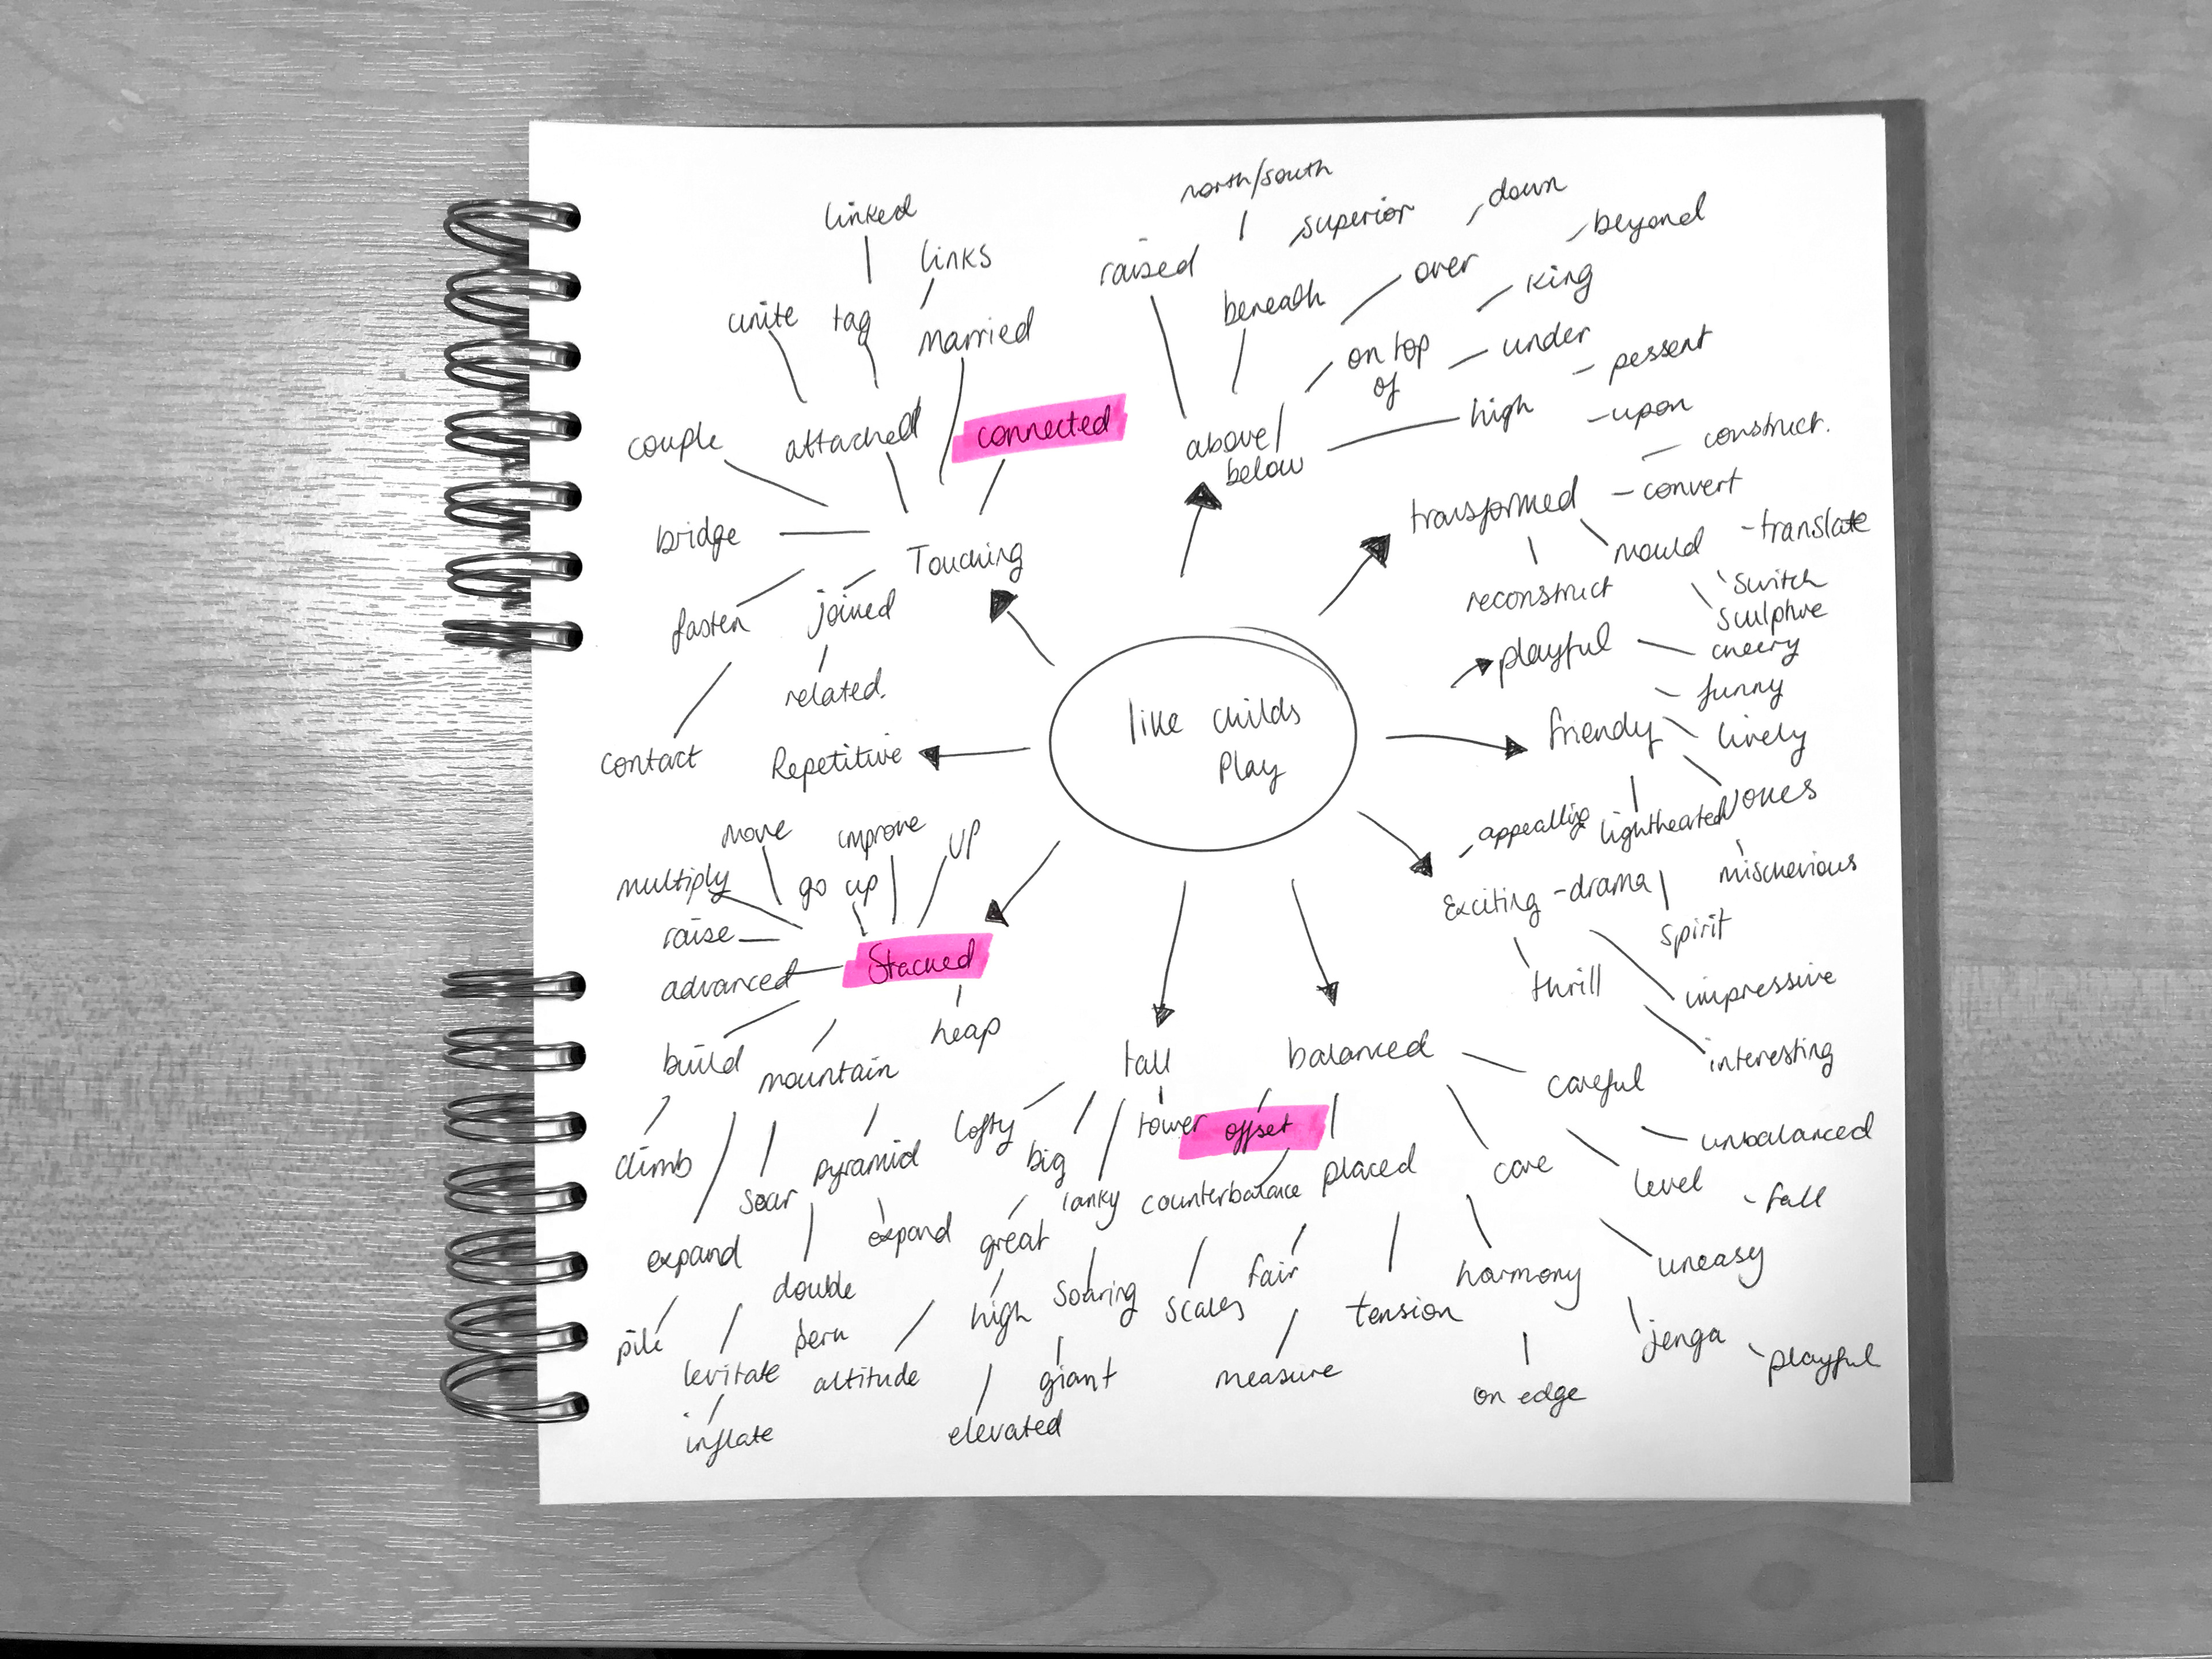 north/south
down
linked
superior
beyond
links
raised
over
king
beneath
unite
tag
married
on top
of
under
pessent
high
upon
connected
couple
attached
above/
below
construct.
transformed
convert
bridge
translate
Touching
mould
switch
reconstruct
sculpture
fasten
joined
playful
cheery
related.
funny
like childs
Play
friendy
lively
contact
Repetitive
jokes
move
improve
up
appealing
lighthearted
mischevious
multiply
go up
Exciting
drama
raise
spirit
Stacked
advanced
thrill
impressive
heap
build
mountain
tall
balanced
interesting
careful
lofty
tower
offset
unbalanced
climb
pyramid
big
placed
care
level
soar
lanky
counterbalance
fall
expand
expand
great
uneasy
double
high
soaring
scales
fair
harmony
tension
pile
jenga
playful
levitate
altitude
giant
measure
on edge
inflate
elevated